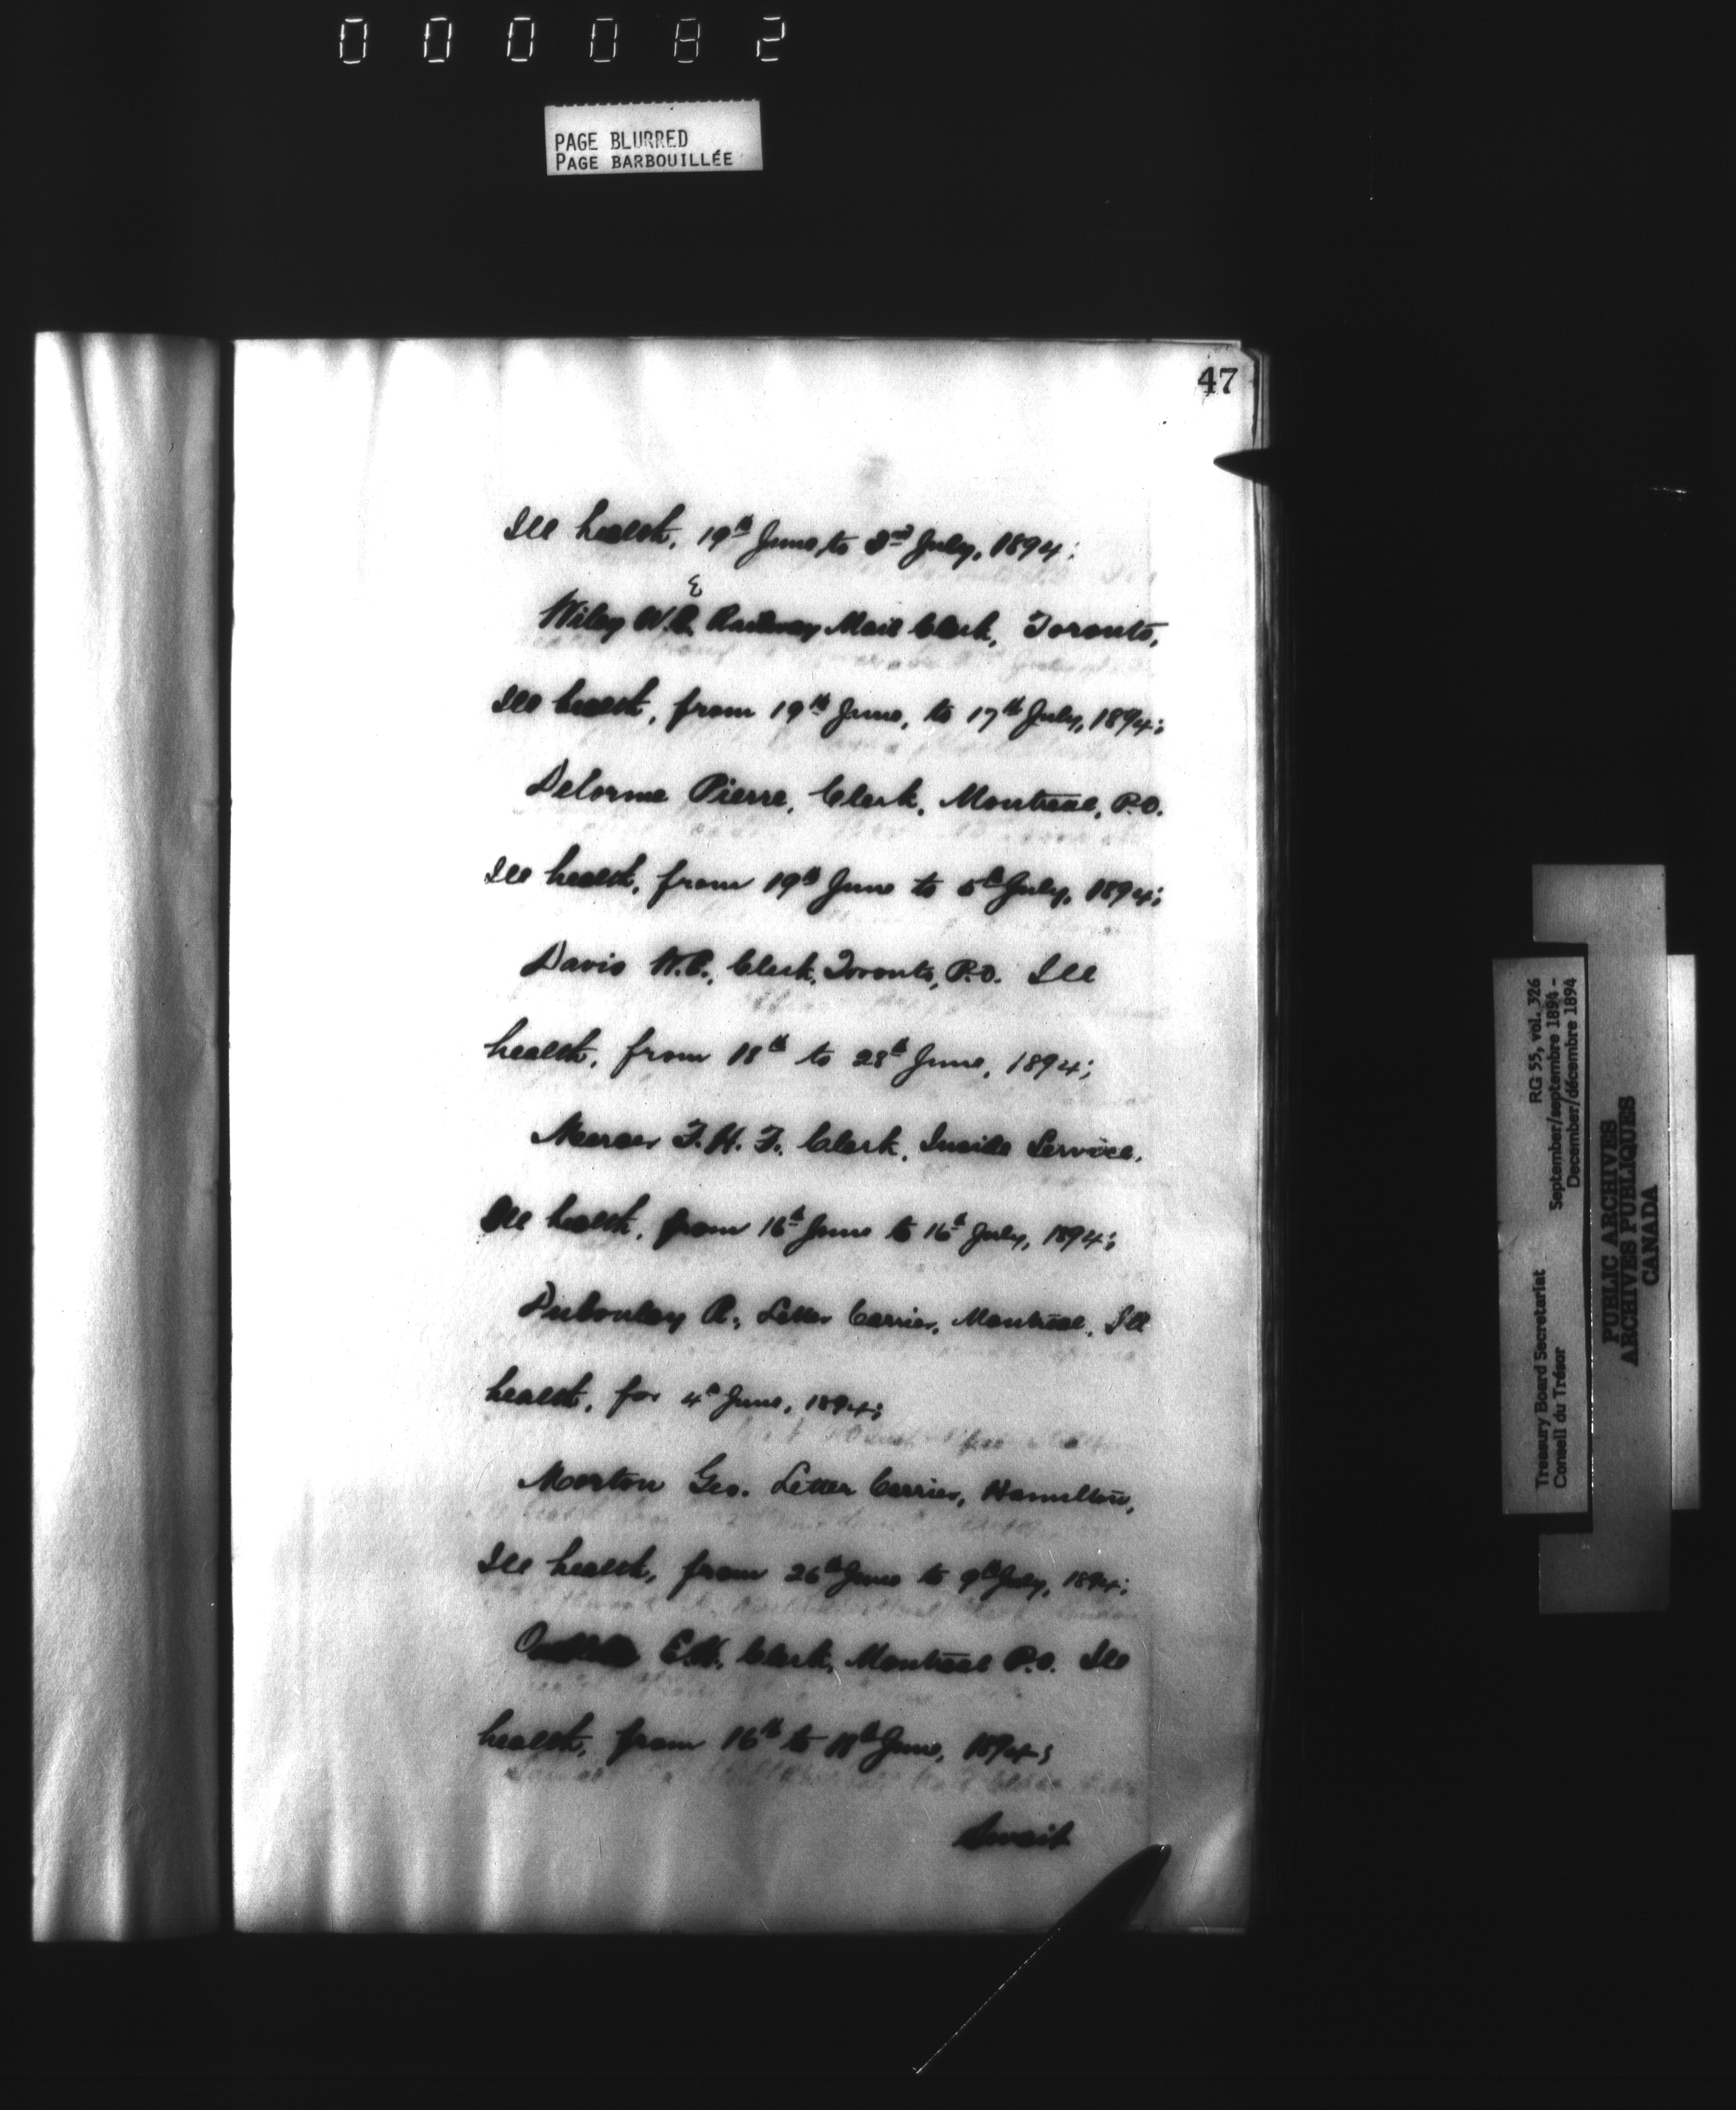 000082
PAGE BLURRED
PAGE BARBOUILLÉE
47
Ill health, 19th June, to 3rd July, 1894;
E
Wiley W. Railway Mail Clerk, Toronto,
Ill health, from 19th June, to 17th July, 1894;
Delorme Pierre, Clerk, Montreal, P.O.
Ill health, from 19th June to 5th July, 1894;
Davis W. Clerk, Toronto, P.O. Ill
health, from 18th to 28th June, 1894;
Mercer F. H. F. Clerk, Inside Service,
Ill health, from 16th June to 16th July, 1894;
A., Letter Carrier, Montreal, Ill
health, for 4th June, 1894;
Morton Geo. Letter Carrier, Hamilton,
Ill health, from 26th June to 9th July, 1894;
E.H. Clerk, Montreal P.O. Ill
health, from 16th to 18th June, 1894;
Treasury Board Secretariat RG 55, vol. 326
Conseil du Trésor September/septembre 1894 -
December/décembre 1894
PUBLIC ARCHIVES
ARCHIVES PUBLIQUES
CANADA